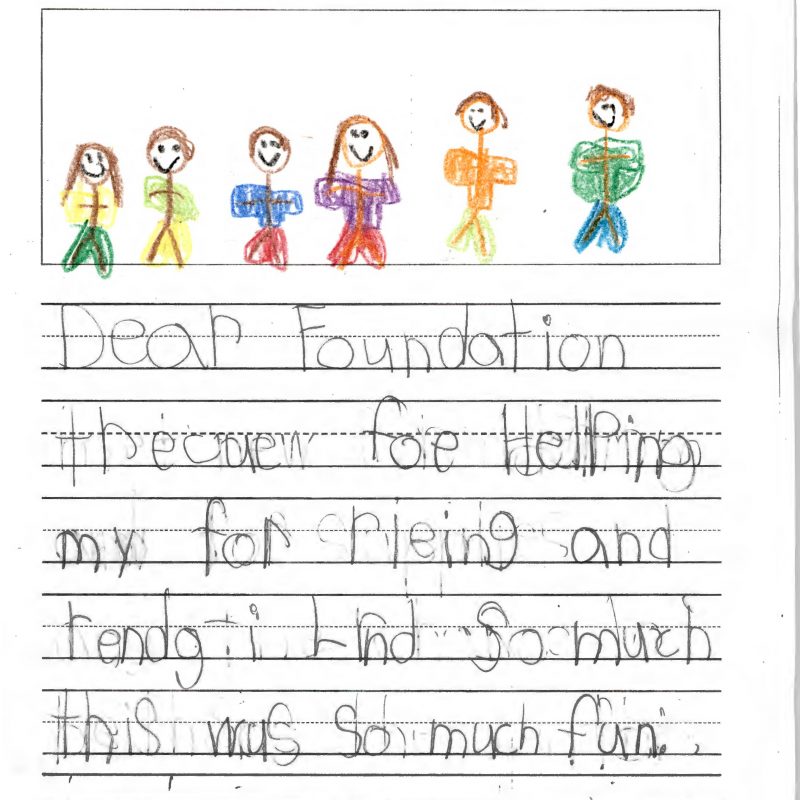 Dear Foundation
thecuew foe Hellping
my for rieing and
rendg i Lrnd So much
this was So much fun.